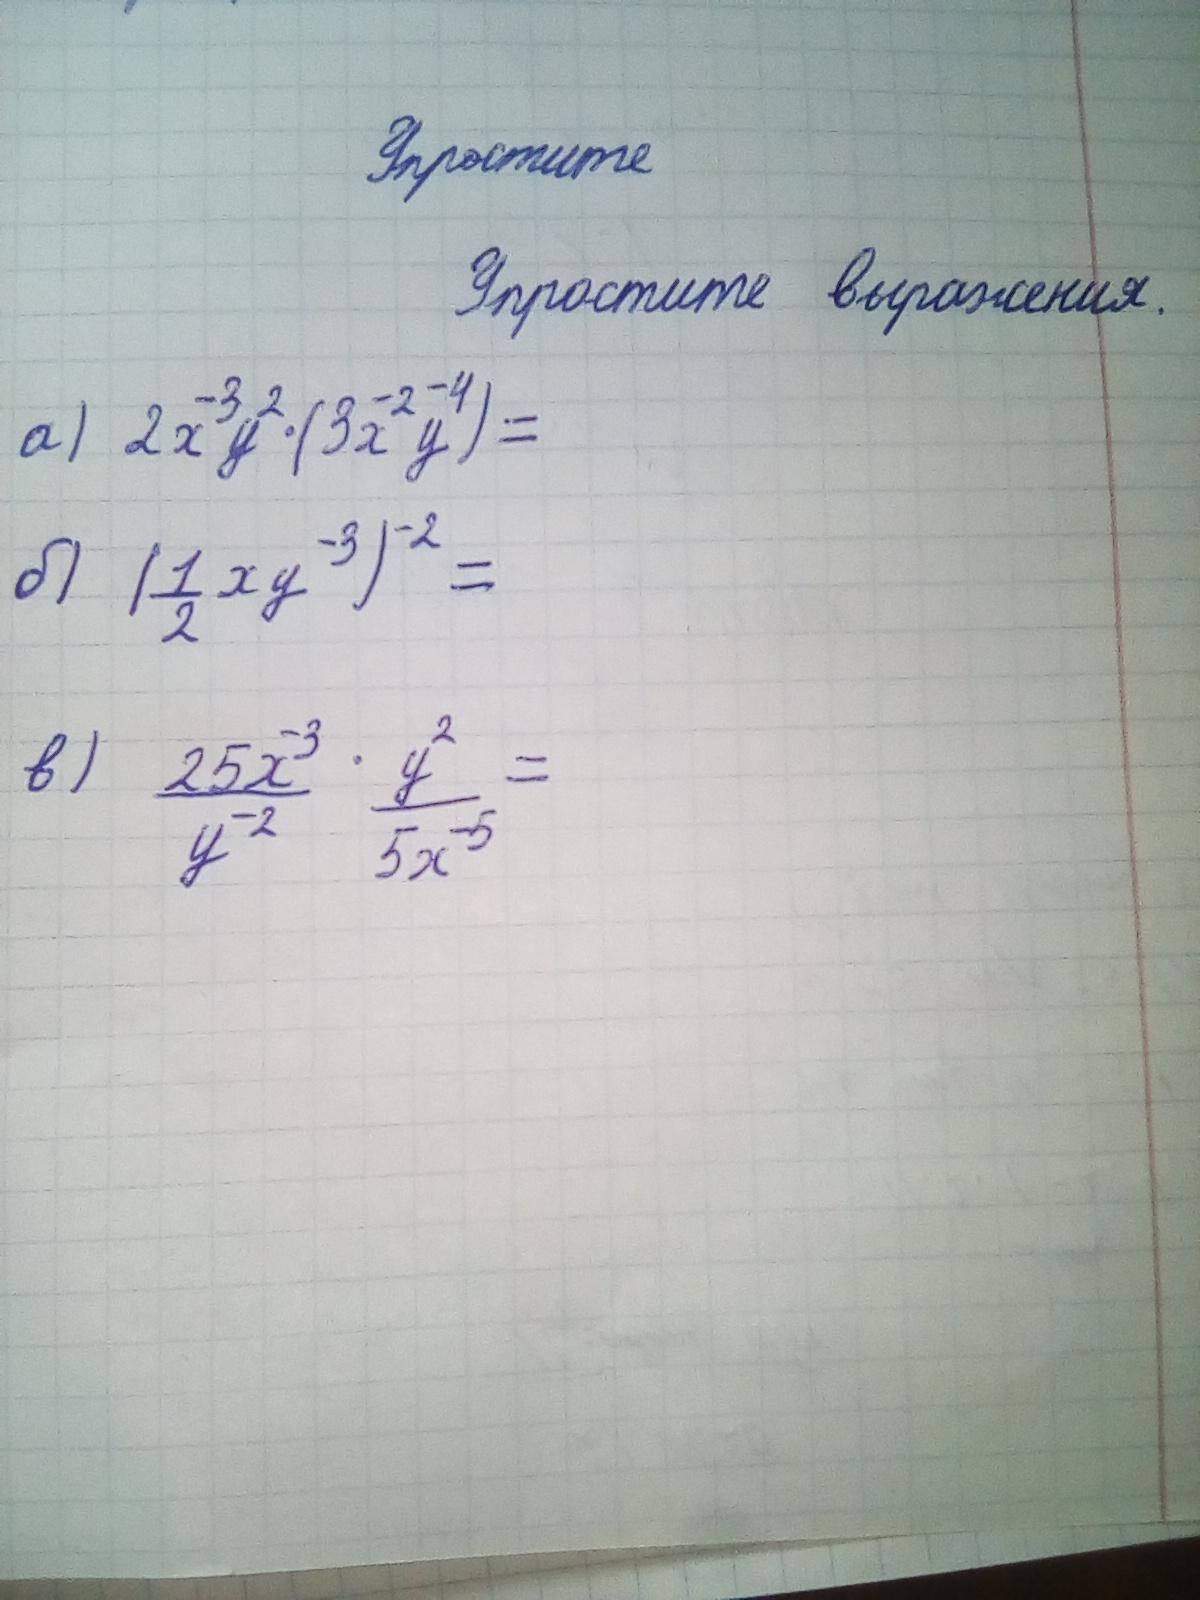 Упростите
Упростите выражения.
а) 2x⁻³y²·(3x⁻²y⁻⁴)=
б) (1/2 xy⁻³)⁻²=
в) 25x⁻³/y⁻² · y²/5x⁻⁵=